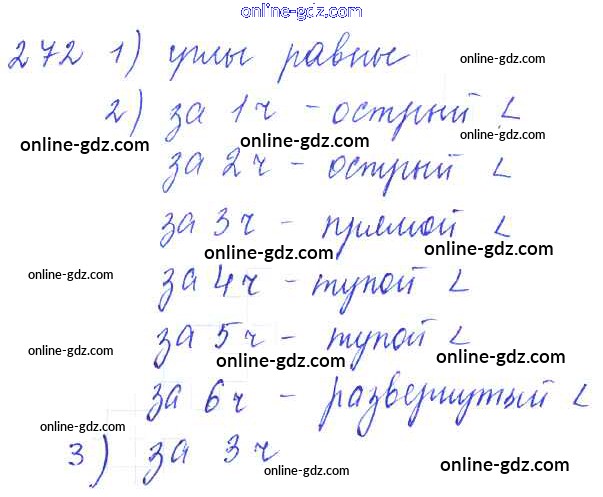 online-gdz.com
272 1) углы равные online-gdz.com
2) за 1ч - острый ∠
online-gdz.com online-gdz.com online-gdz.com
за 2ч - острый ∠
online-gdz.com online-gdz.com
за 3ч - прямой ∠
online-gdz.com online-gdz.com
online-gdz.com за 4ч - тупой ∠
online-gdz.com за 5ч - тупой ∠
online-gdz.com online-gdz.com
за 6ч - развернутый ∠
online-gdz.com online-gdz.com
3) за 3ч
online-gdz.com online-gdz.com